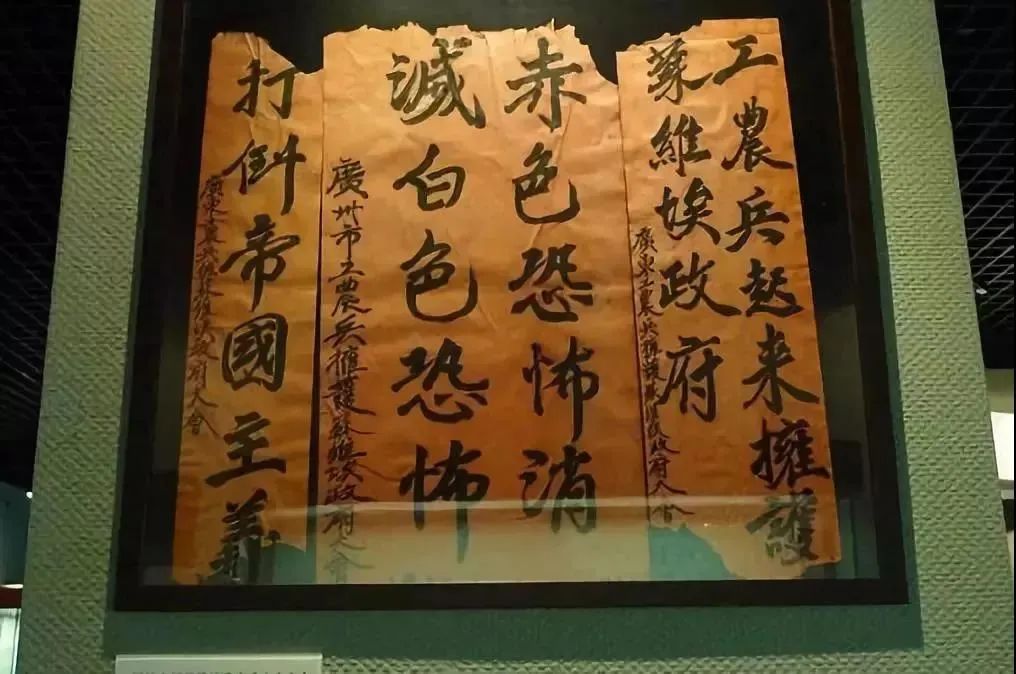 工農兵起来擁護
蘇維埃政府
廣東工农兵擁護蘇維埃政府大会
赤色恐怖消
滅白色恐怖
廣州市工农兵擁護蘇維埃政府大會
打倒帝國主義
廣東工农兵擁護蘇維埃政府大會